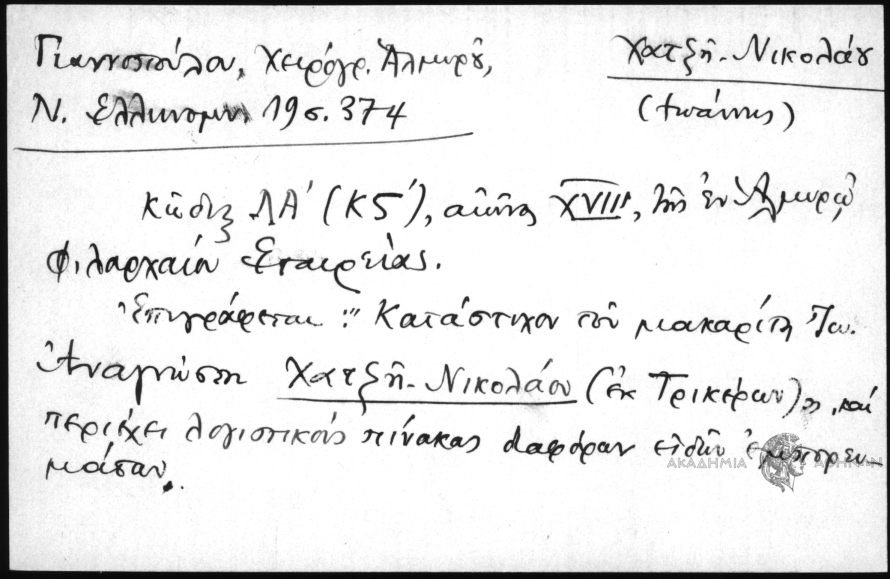 Γιαννοπούλου, Χειρόγρ. Ἁλμυροῦ,
Ν. Ἑλληνομν. 19 σ. 374
Χατζῆ-Νικολάου
(Ἰωάννης)
Κῶδιξ ΛΑ' (ΚS'), αἰῶνος XVIII, τῆς ἐν Ἁλμυρῷ
Φιλαρχαίου Ἑταιρείας.
Ἐπιγράφεται: "Κατάστιχον τοῦ μακαρίτη Ἰω.
Ἀναγνώστη Χατζῆ-Νικολάου (ἐκ Τρικέρων)", καὶ
περιέχει λογιστικοὺς πίνακας διαφόρων εἰδῶν ἐμπορευ-
μάτων.
ΑΚΑΔΗΜΙΑ ΑΘΗΝΩΝ